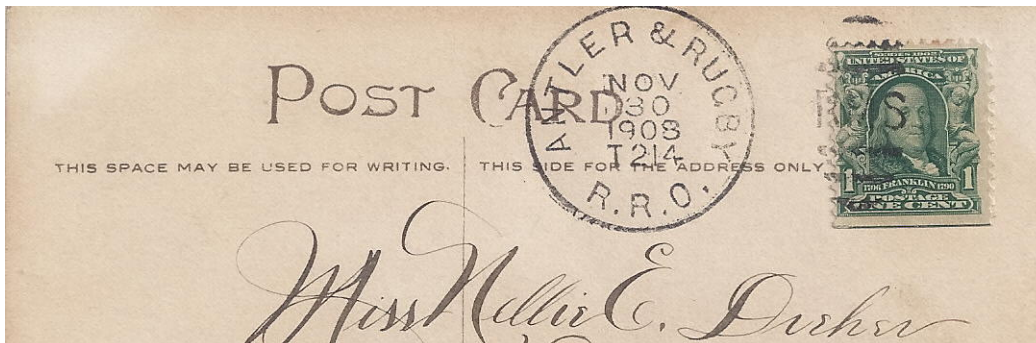 POST CARD
THIS SPACE MAY BE USED FOR WRITING.
THIS SIDE FOR THE ADDRESS ONLY
ANTLER & RUGBY
NOV
30
1908
T 214
R.P.O.
RMS
SERIES 1902
UNITED STATES OF
AMERICA
1 1706 FRANKLIN 1790 1
POSTAGE
ONE CENT
Miss Nellie E. Dreher